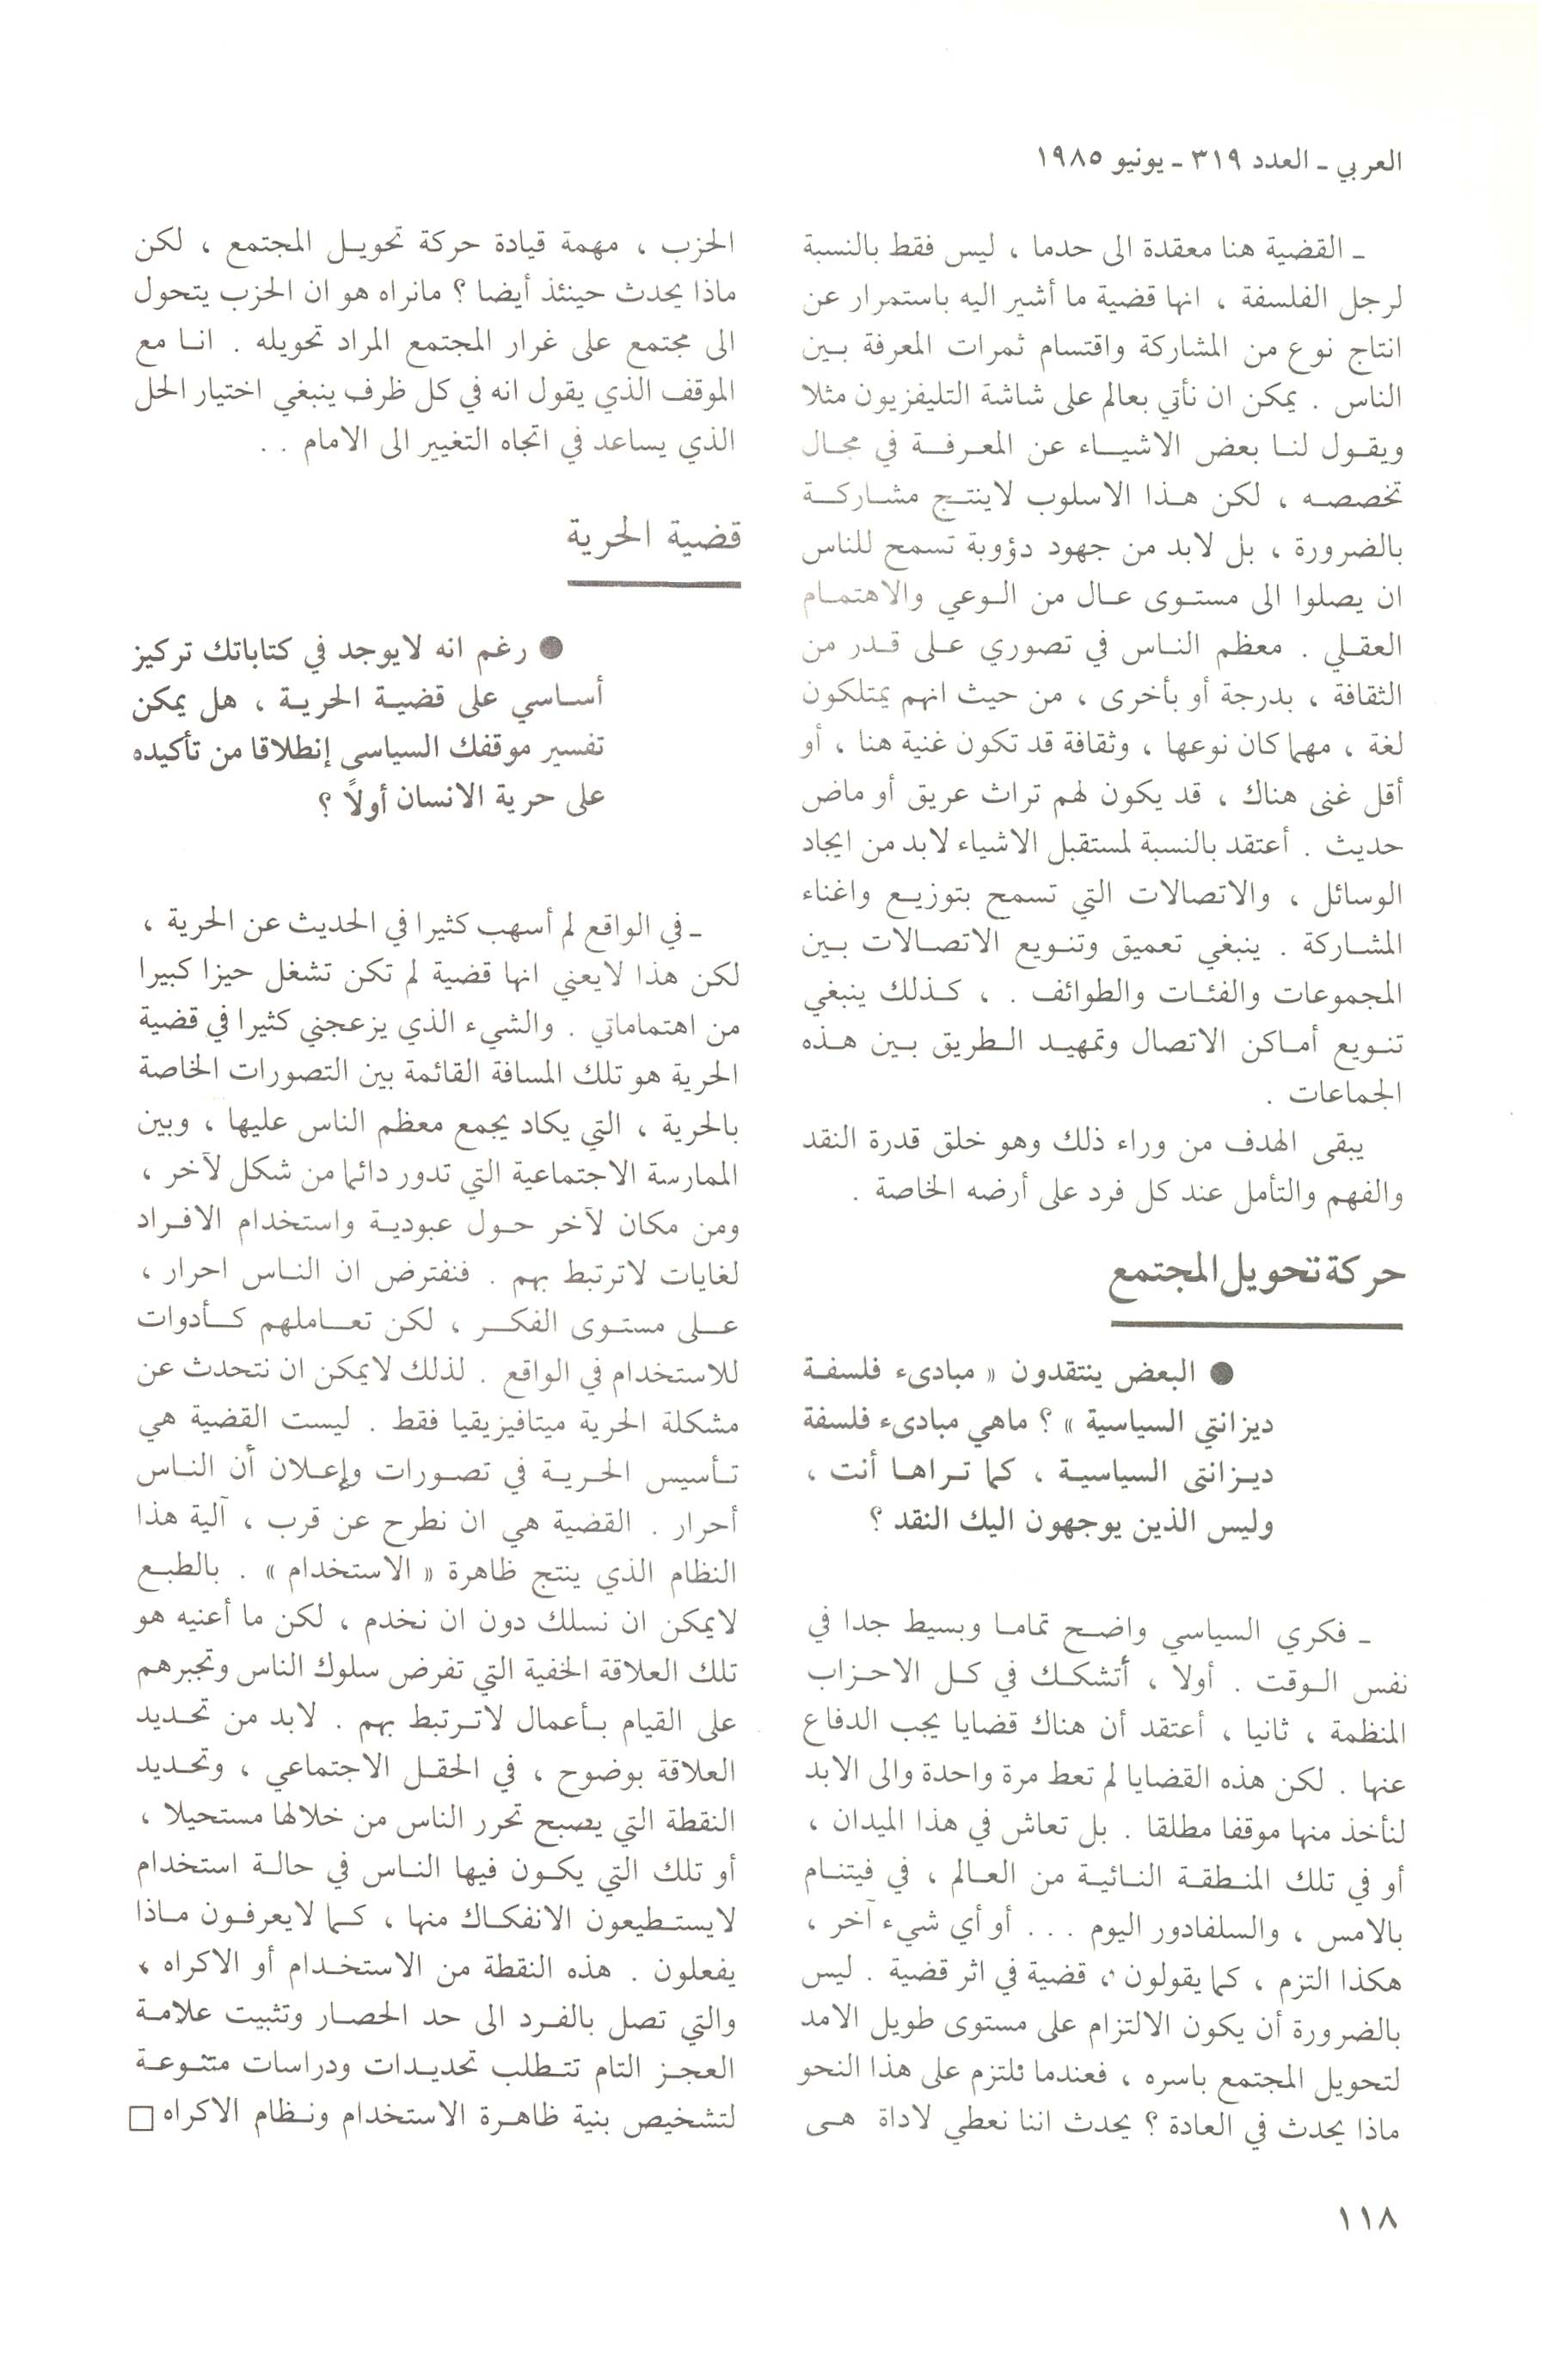 العربي ـ العدد ٣١٩ ـ يونيو ١٩٨٥
ـ القضية هنا معقدة الى حدما ، ليس فقط بالنسبة
لرجل الفلسفة ، انها قضية ما أشير اليه باستمرار عن
انتاج نوع من المشاركة واقتسام ثمرات المعرفة بين
الناس . يمكن ان نأتي بعالم على شاشة التليفزيون مثلا
ويقول لنا بعض الاشياء عن المعرفة في مجال
تخصصه ، لكن هذا الاسلوب لاينتج مشاركة
بالضرورة ، بل لابد من جهود دؤوبة تسمح للناس
ان يصلوا الى مستوى عال من الوعي والاهتمام
العقلي . معظم الناس في تصوري على قدر من
الثقافة ، بدرجة أو بأخرى ، من حيث انهم يمتلكون
لغة ، مهما كان نوعها ، وثقافة قد تكون غنية هنا ، أو
أقل غنى هناك ، قد يكون لهم تراث عريق أو ماض
حديث . أعتقد بالنسبة لمستقبل الاشياء لابد من ايجاد
الوسائل ، والاتصالات التي تسمح بتوزيع واغناء
المشاركة . ينبغي تعميق وتنويع الاتصالات بين
المجموعات والفئات والطوائف . ، كذلك ينبغي
تنويع أماكن الاتصال وتمهيد الطريق بين هذه
الجماعات .
يبقى الهدف من وراء ذلك وهو خلق قدرة النقد
والفهم والتأمل عند كل فرد على أرضه الخاصة .
حركة تحويل المجتمع
● البعض ينتقدون « مبادىء فلسفة
ديزانتي السياسية » ؟ ماهي مبادىء فلسفة
ديزانتى السياسية ، كما تراها أنت ،
وليس الذين يوجهون اليك النقد ؟
ـ فكري السياسي واضح تماما وبسيط جدا في
نفس الوقت . أولا ، أتشكك في كل الاحزاب
المنظمة ، ثانيا ، أعتقد أن هناك قضايا يجب الدفاع
عنها . لكن هذه القضايا لم تعط مرة واحدة والى الابد
لنأخذ منها موقفا مطلقا . بل تعاش في هذا الميدان ،
أو في تلك المنطقة النائية من العالم ، في فيتنام
بالامس ، والسلفادور اليوم . . . أو أي شيء آخر ،
هكذا التزم ، كما يقولون ، قضية في اثر قضية . ليس
بالضرورة أن يكون الالتزام على مستوى طويل الامد
لتحويل المجتمع باسره ، فعندما نلتزم على هذا النحو
ماذا يحدث في العادة ؟ يحدث اننا نعطي لاداة هى
الحزب ، مهمة قيادة حركة تحويل المجتمع ، لكن
ماذا يحدث حينئذ أيضا ؟ مانراه هو ان الحزب يتحول
الى مجتمع على غرار المجتمع المراد تحويله . انا مع
الموقف الذي يقول انه في كل ظرف ينبغي اختيار الحل
الذي يساعد في اتجاه التغيير الى الامام . .
قضية الحرية
● رغم انه لايوجد في كتاباتك تركيز
أساسي على قضية الحرية ، هل يمكن
تفسير موقفك السياسى إنطلاقا من تأكيده
على حرية الانسان أولاً ؟
ـ في الواقع لم أسهب كثيرا في الحديث عن الحرية ،
لكن هذا لايعني انها قضية لم تكن تشغل حيزا كبيرا
من اهتماماتي . والشيء الذي يزعجني كثيرا في قضية
الحرية هو تلك المسافة القائمة بين التصورات الخاصة
بالحرية ، التي يكاد يجمع معظم الناس عليها ، وبين
الممارسة الاجتماعية التي تدور دائما من شكل لآخر ،
ومن مكان لآخر حول عبودية واستخدام الافراد
لغايات لاترتبط بهم . فنفترض ان الناس احرار ،
على مستوى الفكر ، لكن تعاملهم كأدوات
للاستخدام في الواقع . لذلك لايمكن ان نتحدث عن
مشكلة الحرية ميتافيزيقيا فقط . ليست القضية هي
تأسيس الحرية في تصورات وإعلان أن الناس
أحرار . القضية هي ان نطرح عن قرب ، آلية هذا
النظام الذي ينتج ظاهرة « الاستخدام » . بالطبع
لايمكن ان نسلك دون ان نخدم ، لكن ما أعنيه هو
تلك العلاقة الخفية التي تفرض سلوك الناس وتجبرهم
على القيام بأعمال لاترتبط بهم . لابد من تحديد
العلاقة بوضوح ، في الحقل الاجتماعي ، وتحديد
النقطة التي يصبح تحرر الناس من خلالها مستحيلا ،
أو تلك التي يكون فيها الناس في حالة استخدام
لايستطيعون الانفكاك منها ، كما لايعرفون ماذا
يفعلون . هذه النقطة من الاستخدام أو الاكراه ،
والتي تصل بالفرد الى حد الحصار وتثبيت علامة
العجز التام تتطلب تحديدات ودراسات متنوعة
لتشخيص بنية ظاهرة الاستخدام ونظام الاكراه □
١١٨